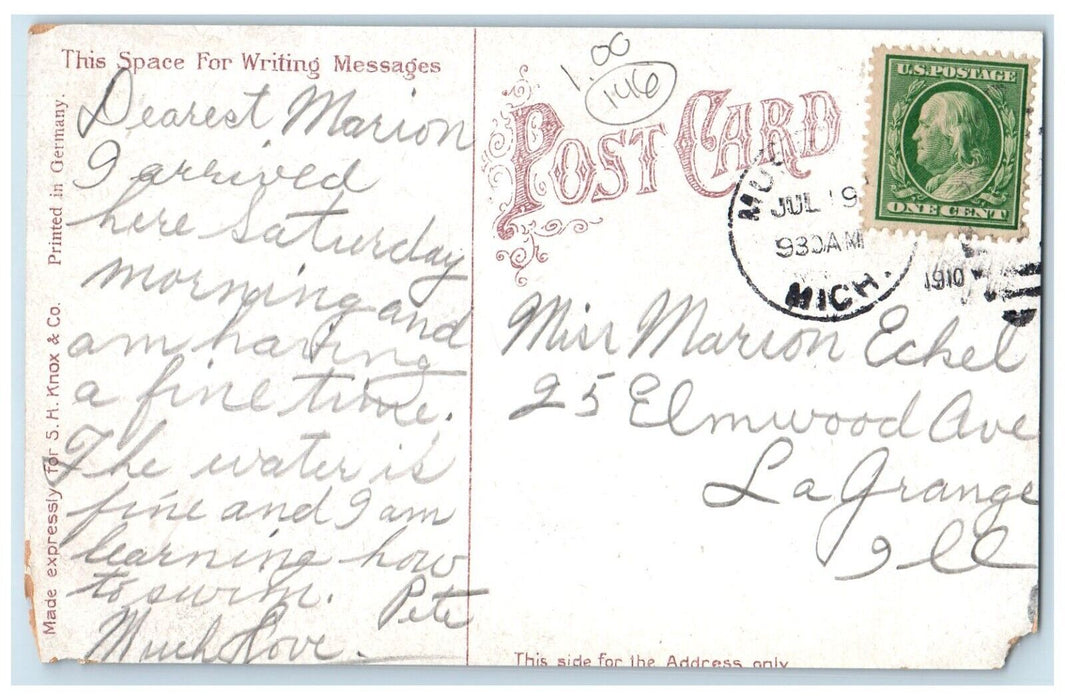 This Space For Writing Messages
Dearest Marion
I arrived
here Saturday
morning and
am having
a fine time.
The water is
fine and I am
learning how
to swim.
Pete
Much Love.
Made expressly for S. H. Knox & Co. Printed in Germany.
1.00
146
POST CARD
U.S. POSTAGE
ONE CENT
JUL 19
930 AM
MICH.
1910
Miss Marion Eckel
25 Elmwood Ave
La Grange
Ill
This side for the Address only